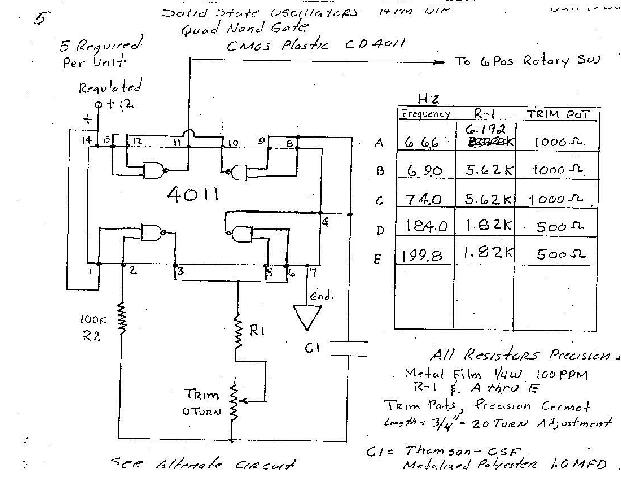 5
Solid State Oscillators 14 Pin DIP
Quad Nand Gate
CMOS Plastic CD4011
5 Required
Per Unit
To 6 Pos Rotary SW
Regulated
+12
+
14 13 12 11 10 9 8
4011
1 2 3 4 5 6 7
Hz
Frequency R-1 TRIM POT
A 666 6.192 K 1000Ω
B 690 5.62K 1000Ω
C 740 5.62K 1000Ω
D 184.0 1.82K 500Ω
E 199.8 1.82K 500Ω
100K
R2
R1
Gnd.
C1
Trim
20 Turn
All Resistors Precision
Metal Film 1/4W 100PPM
R-1 & A thru E
Trim Pots, Precision Cermet
Length = 3/4" - 20 Turn Adjustment
C1 = Thomson-CSF
Metalized Polyester 1.0 MFD
See Alternate Circuit